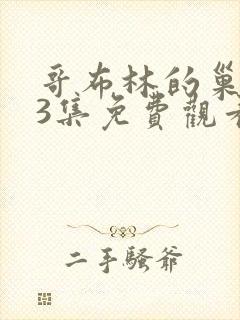 哥布林的巢
3集免費觀看
二手騷爺